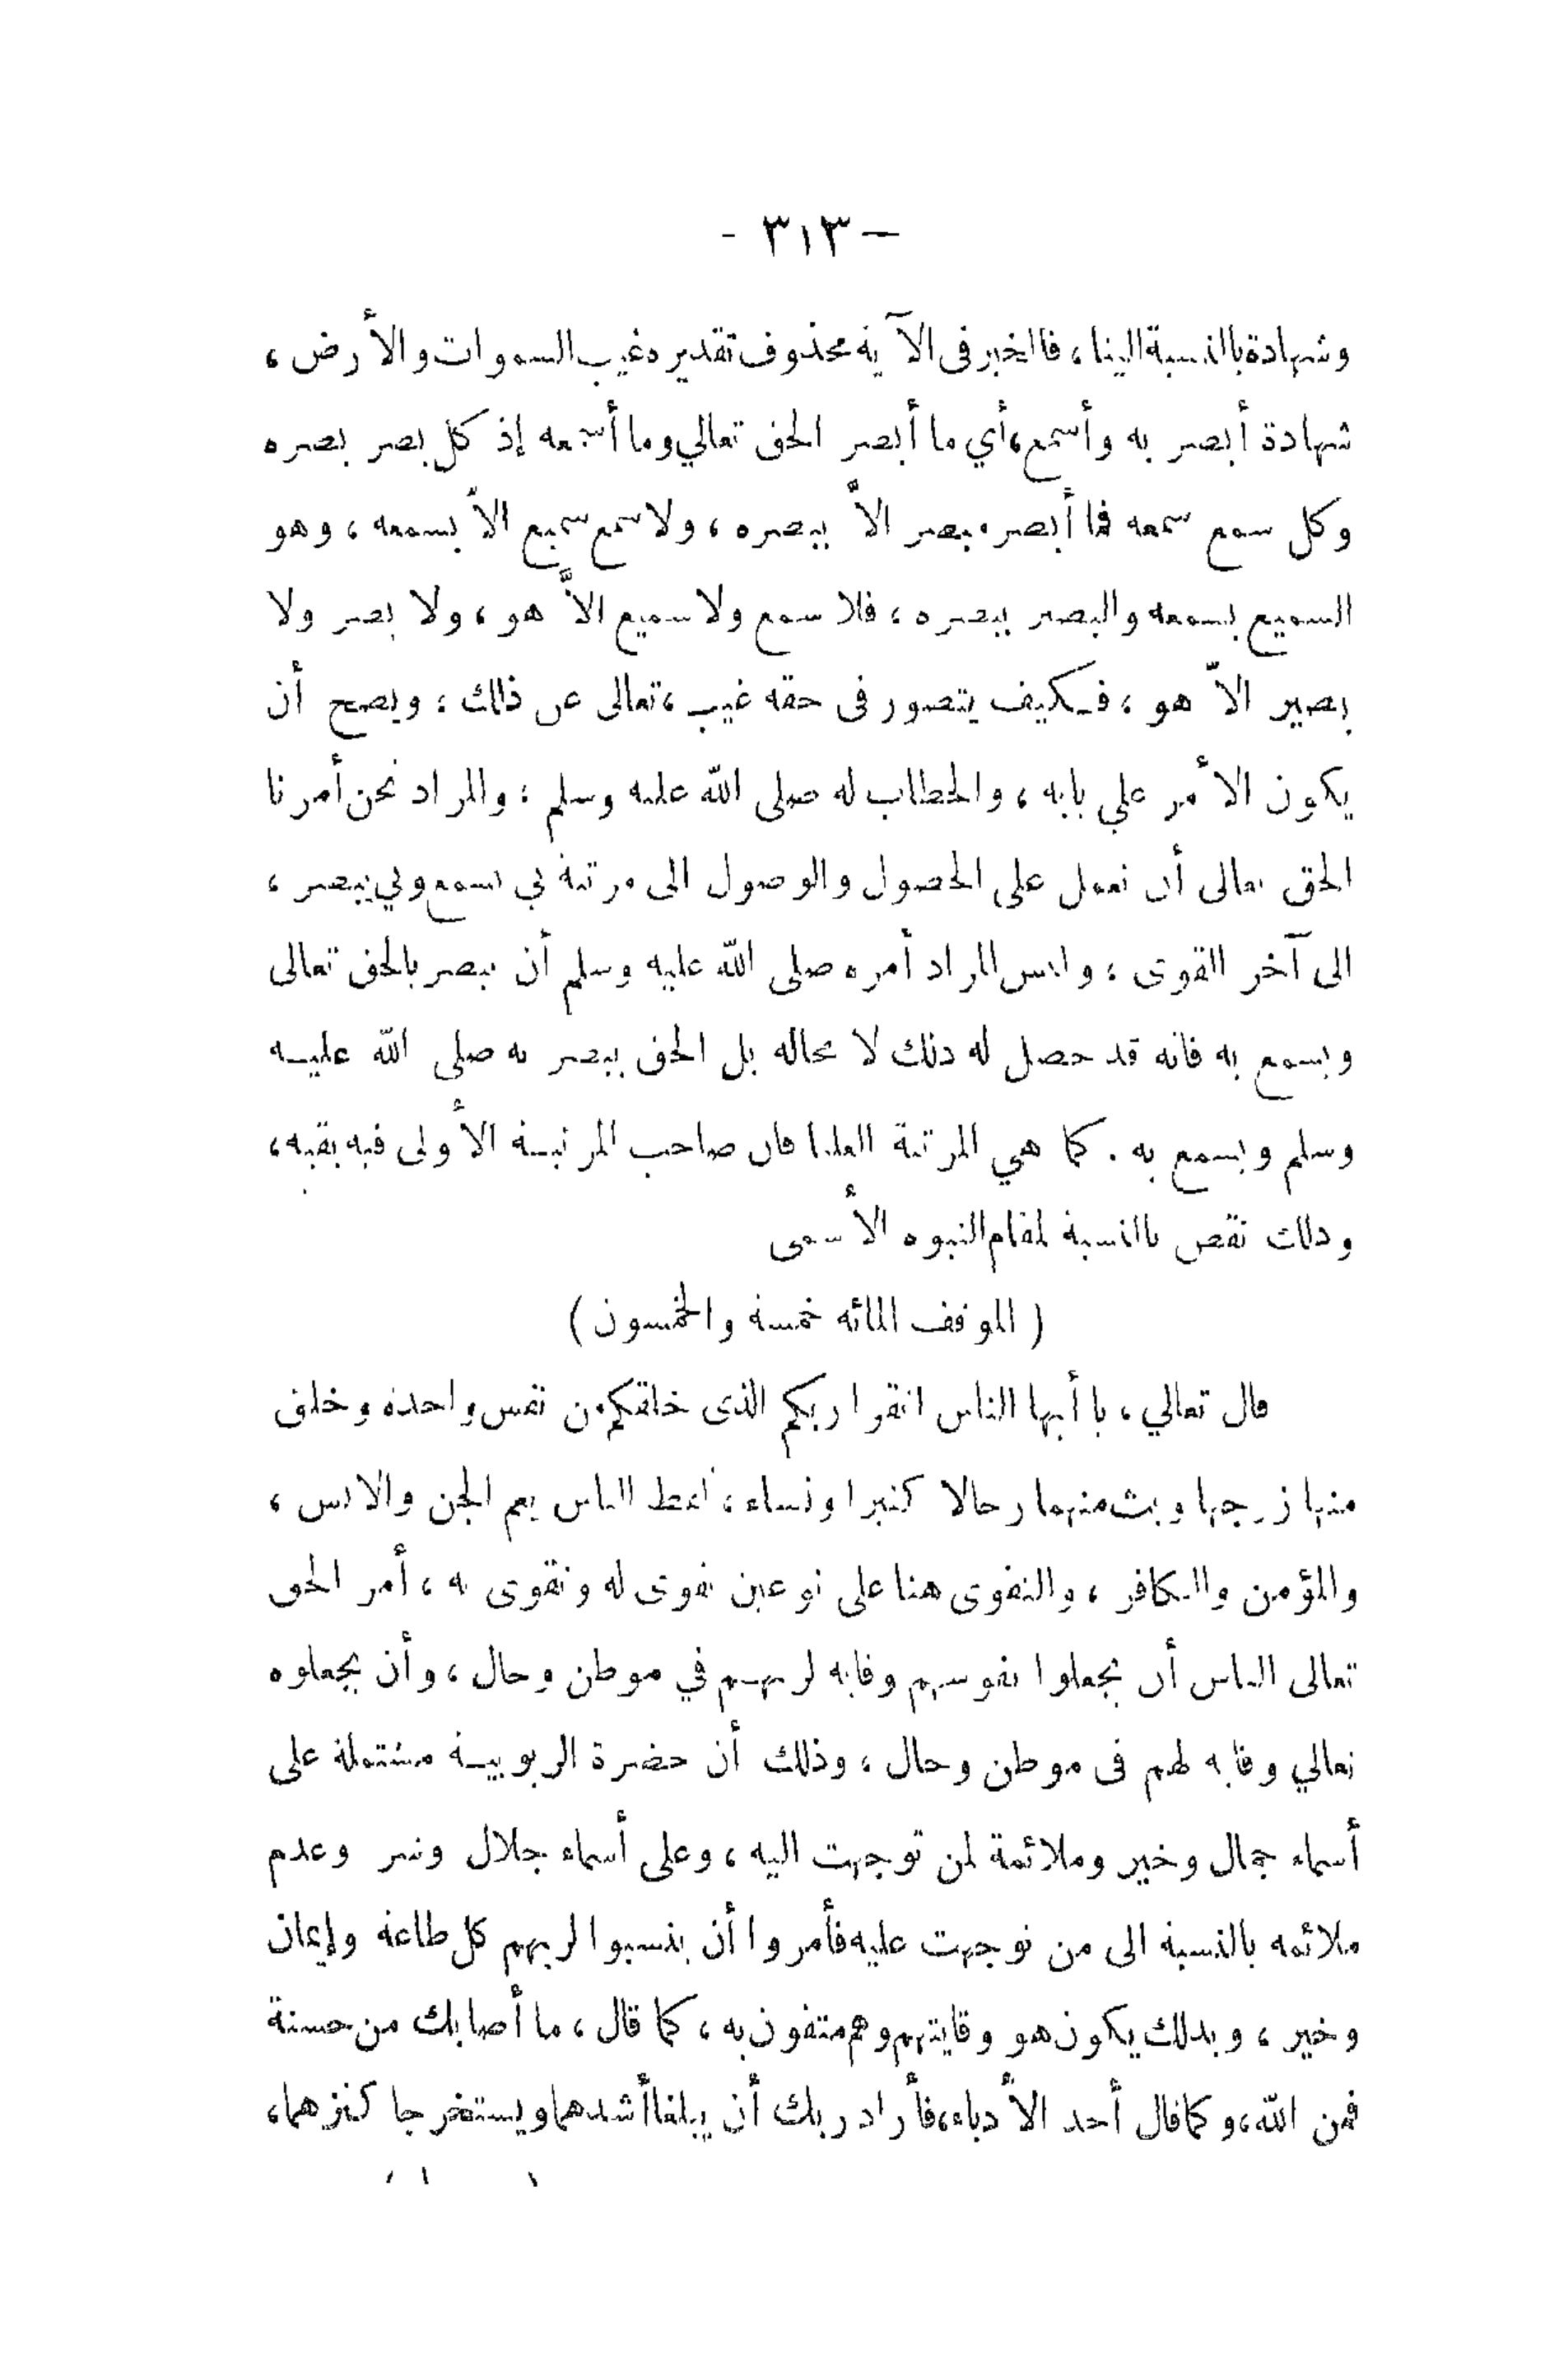 — ٣١٣ -
وشهادة بالنسبة الينا، فالخبر فى الآية محذوف تقديره غيب السموات والأرض،
شهادة أبصر به وأسمع، أي ما أبصر الحق تعالي وما أسمعه إذ كل بصر بصره
وكل سمع سمعه فما أبصر مبصر الاّ ببصره، ولا سمع سميع الاّ بسمعه، وهو
السميع بسمعه والبصير ببصره، فلا سمع ولا سميع الاّ هو، ولا بصر ولا
بصير الاّ هو، فكيف يتصور فى حقه غيب، تعالى عن ذلك، ويصح أن
يكون الأمر علي بابه، والخطاب له صلى الله عليه وسلم، والمراد نحن أمرنا
الحق تعالى أن نعمل على الحصول والوصول الى مرتبة بي يسمع وبي يبصر،
الى آخر القوى، وليس المراد أمره صلى الله عليه وسلم أن يبصر بالحق تعالى
ويسمع به فانه قد حصل له ذلك لا محالة بل الحق يبصر به صلى الله عليه
وسلم ويسمع به. كما هي المرتبة العليا فان صاحب المرتبة الأولى فيه بقية،
وذلك نقص بالنسبة لمقام النبوة الأسمى
( الموقف المائة خمسة والخمسون )
قال تعالي، يا أيها الناس اتقوا ربكم الذى خلقكم من نفس واحدة وخلق
منها زوجها وبث منهما رجالا كثيرا ونساء، لفظ الناس يعم الجن والانس،
والمؤمن والكافر، والتقوى هنا على نوعين تقوى له وتقوى به، أمر الحق
تعالى الناس أن يجعلوا نفوسهم وقاية لربهم في موطن وحال، وأن يجعلوه
تعالي وقاية لهم فى موطن وحال، وذلك أن حضرة الربوبية مشتملة على
أسماء جمال وخير وملائمة لمن توجهت اليه، وعلى أسماء جلال وشر وعدم
ملائمة بالنسبة الى من توجهت عليه فأمروا أن ينسبوا لربهم كل طاعة وإيمان
وخير، وبذلك يكون هو وقايتهم وهم متقون به، كما قال، ما أصابك من حسنة
فمن الله، وكما قال أحد الأدباء، فأراد ربك أن يبلغا أشدهما ويستخرجا كنزهما،